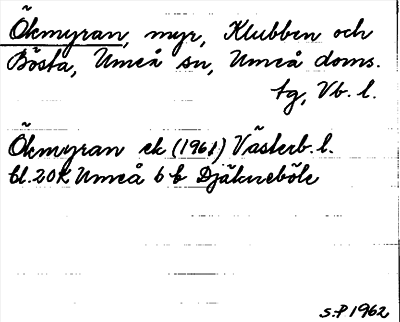 Ökmyran, myr, Klubben och
Bösta, Umeå sn, Umeå doms.
tg, Vb. l.
Ökmyran ek (1961) Västerb. l.
bl. 20K Umeå 6 b Djäkneböle
S.P 1962